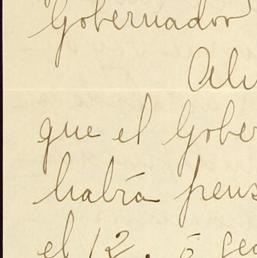 Gobernador
que el Gober
había pens
el 12. ó